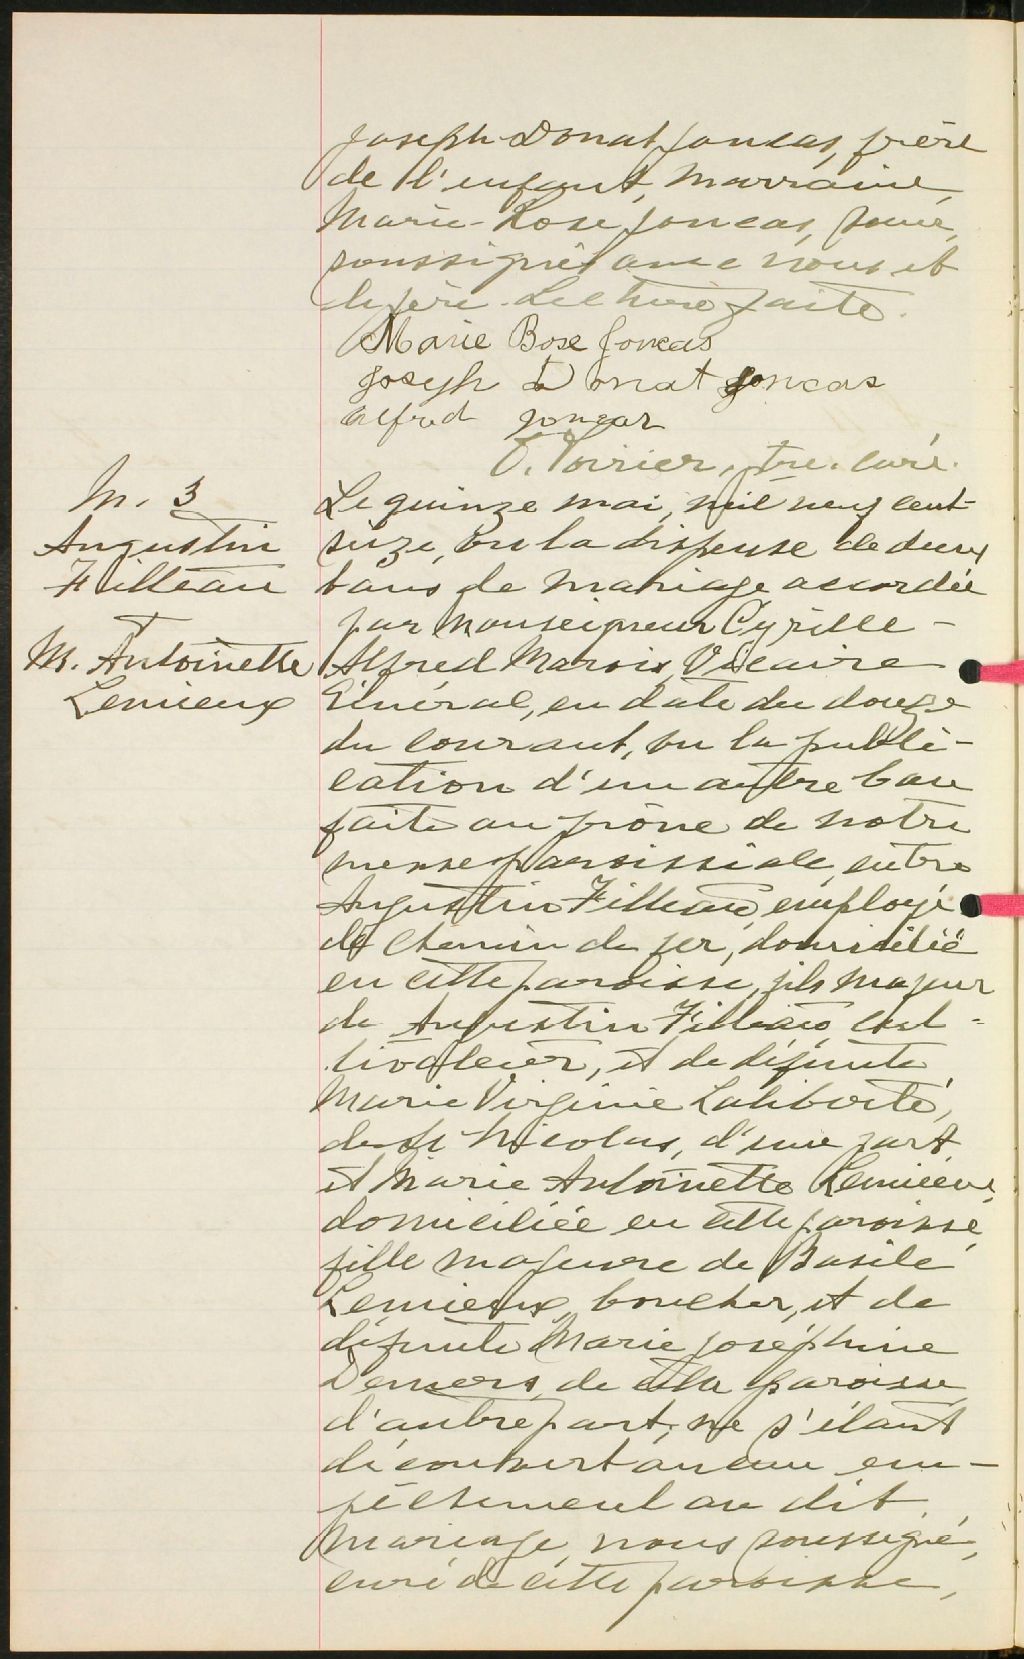 Joseph-Donat Joncas, frère
de l'enfant, marraine,
Marie-Rose Joncas, soeur,
soussignés avec nous et
le père. Lecture faite.
Marie Rose Joncas
Joseph Donat Joncas
Alfred Joncas
O. Poirier, Ptre. curé.
M. 3
Augustin
Filteau
M. Antoinette
Lemieux
Le quinze mai, mil neuf cent
seize, vu la dispense de deux
bans de mariage accordée
par Monseigneur Cyrille-
Alfred Marois, Vicaire
Général, en date du douze
du courant, vu la publi-
cation d'un autre ban
faite au prône de notre
messe paroissiale, entre
Augustin Filteau, employé
de chemin de fer, domicilié
en cette paroisse, fils majeur
de Augustin Filteau, cul-
tivateur, et de défunte
Marie Virginie Laliberté,
de St Nicolas, d'une part,
et Marie Antoinette Lemieux,
domiciliée en cette paroisse,
fille majeure de Basile
Lemieux, boucher, et de
défunte Marie Joséphine
Demers, de cette paroisse,
d'autre part; ne s'étant
découvert aucun em-
pêchement au dit
mariage, nous soussigné,
curé de cette paroisse,